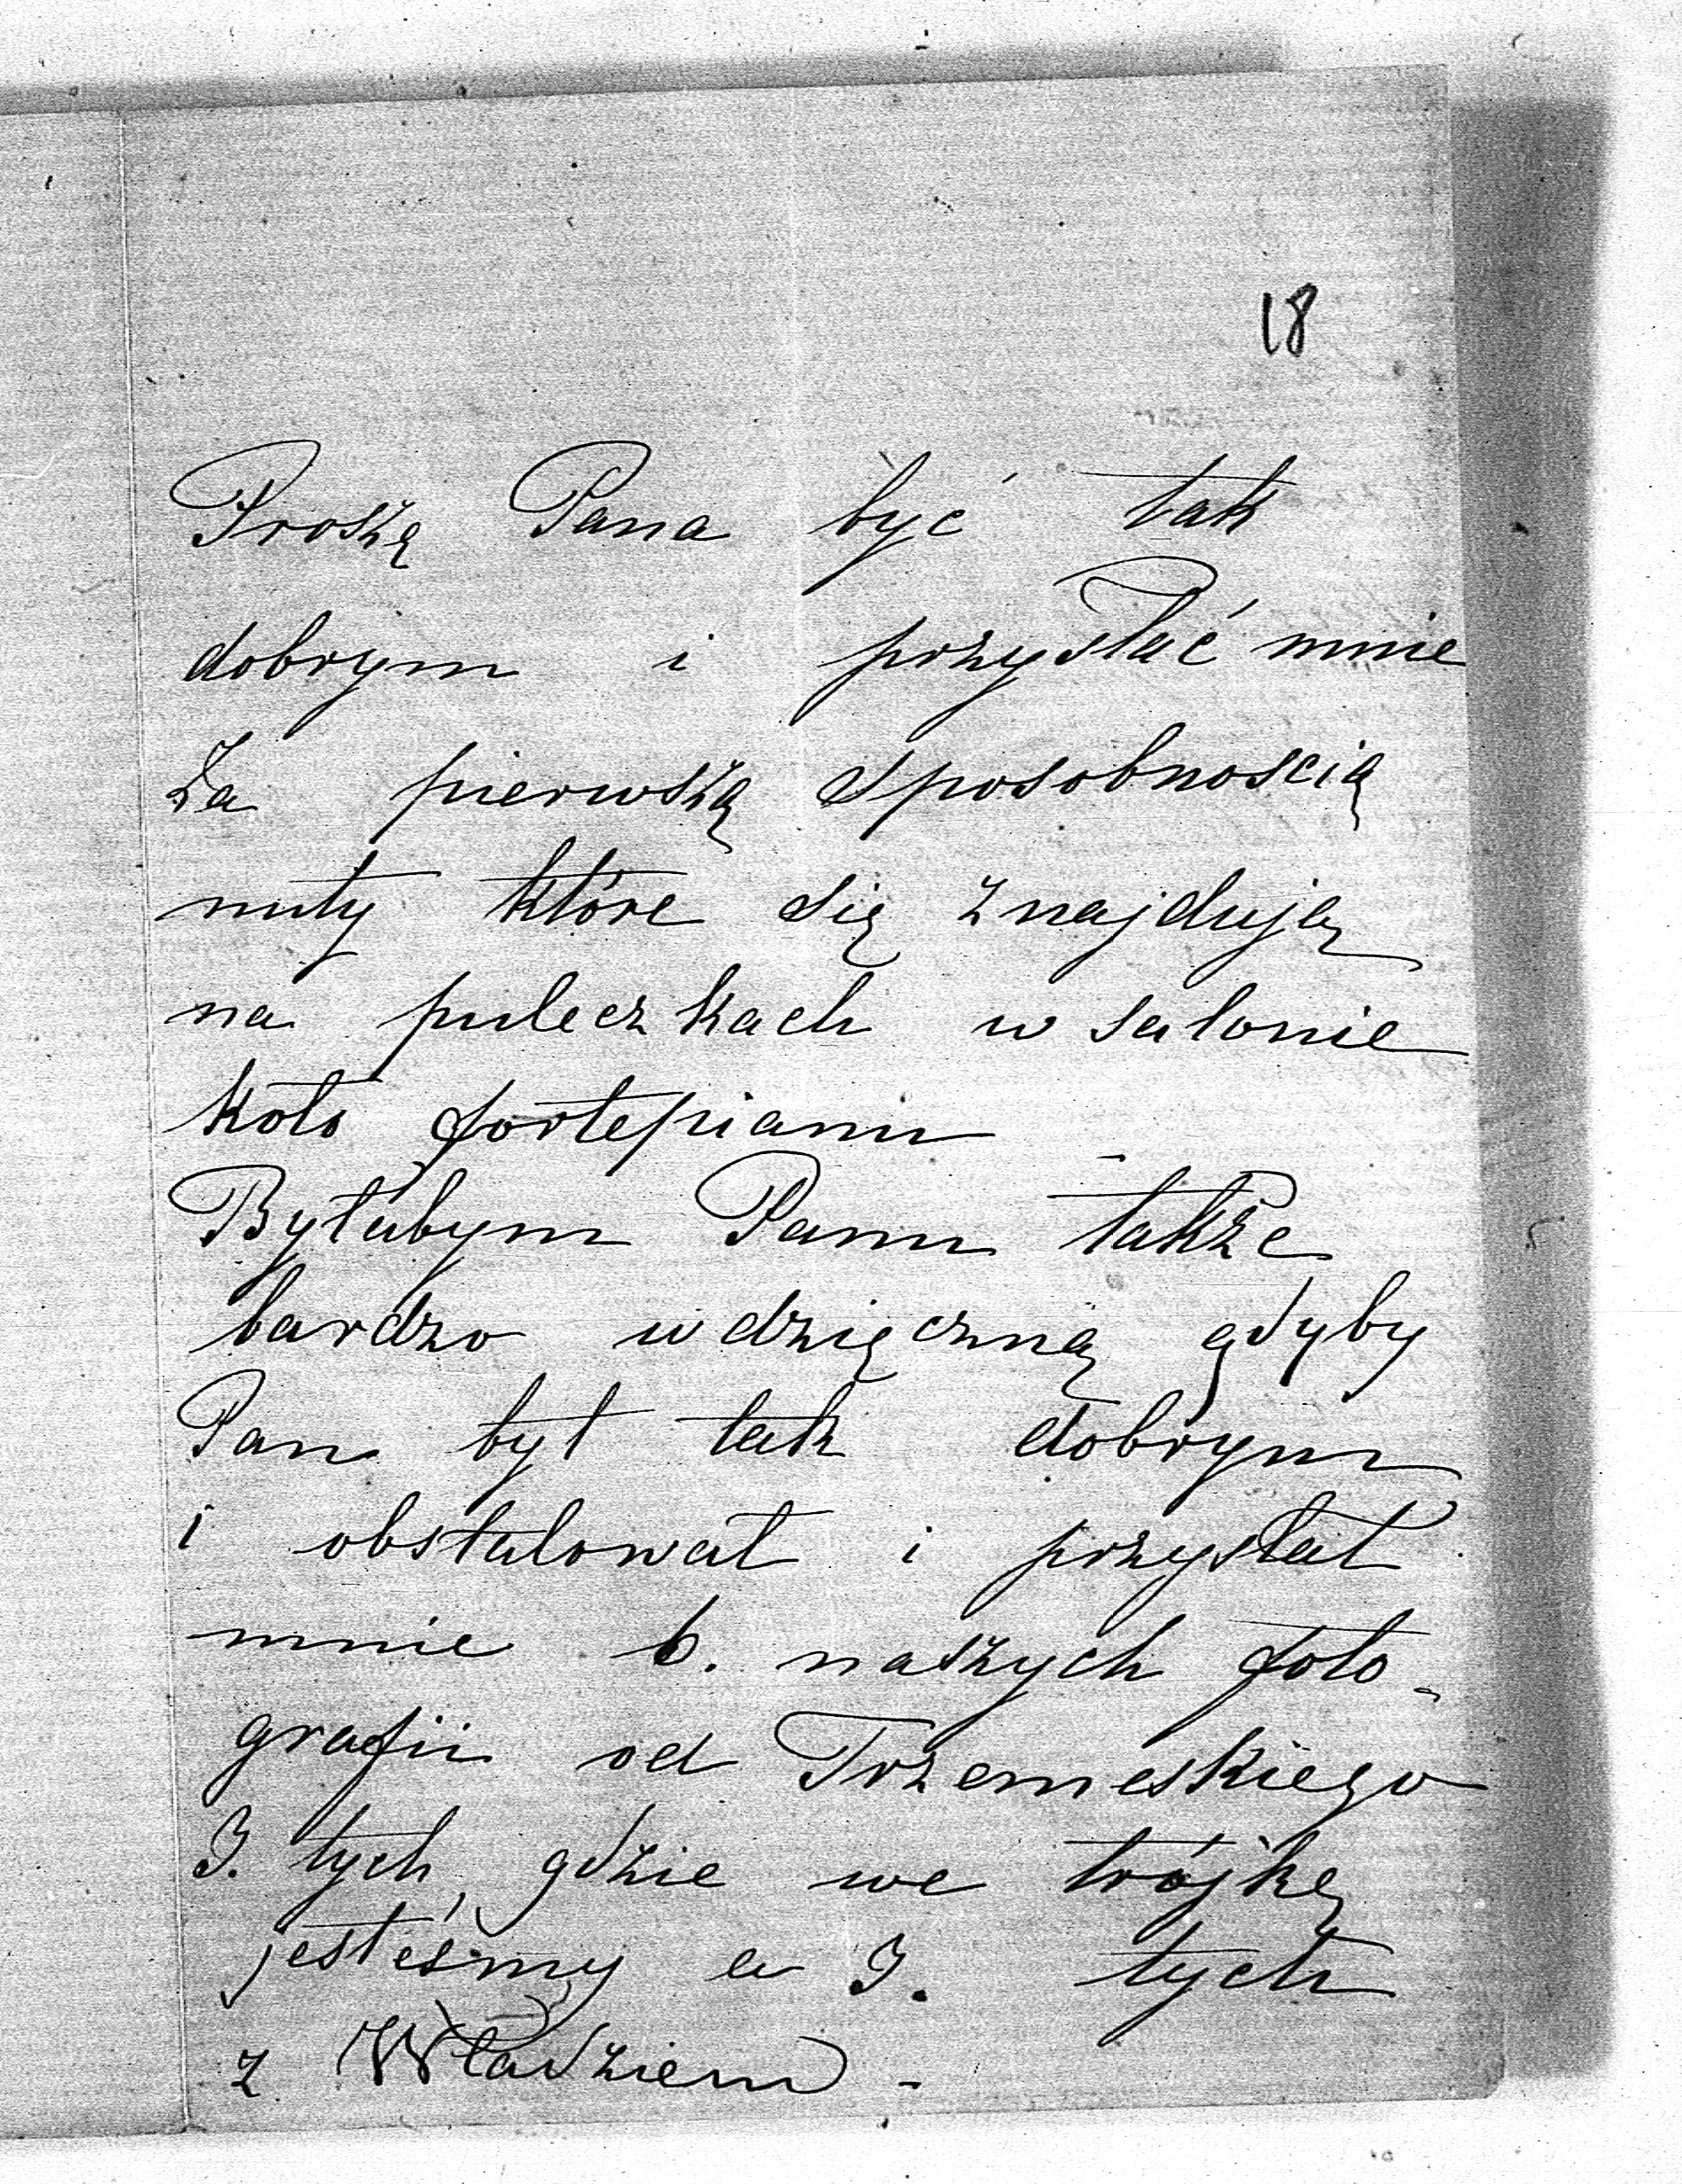 18
Proszę Pana być tak
dobrym i przysłać mnie
Za pierwszą sposobnoscią
nuty które się znajdują
na puleczkach w salonie
koło fortepianu
Byłabym Panu także
bardzo wdzięczną gdyby
Pan był tak dobrym
i obstalował i przysłał
mnie 6. naszych foto-
grafii od Trzemeskiego
3. tych, gdzie we trójkę
jesteśmy a 3. tych
z Władziem -